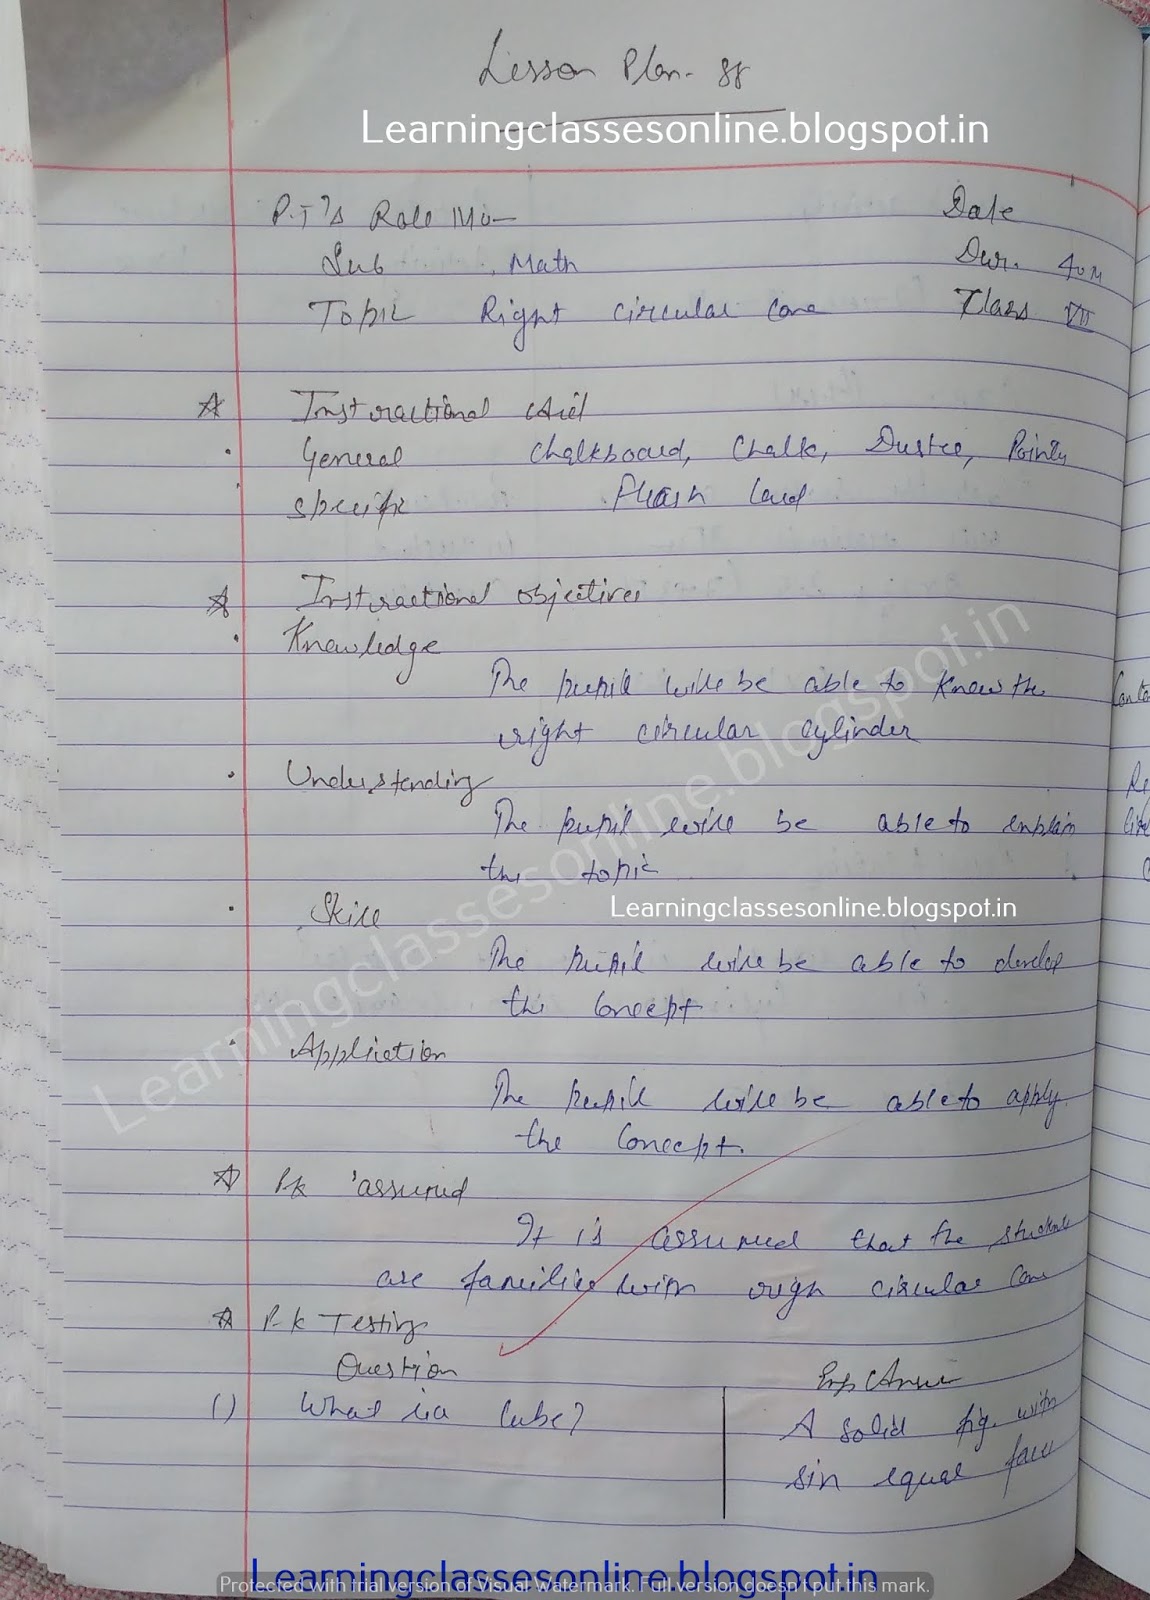 Lesson Plan - 38
Learningclassesonline.blogspot.in
P.T's Role No - Date
Sub Math Dur. 40M
Topic Right circular Cone Class VII
Instructional Aid
General Chalkboard, Chalk, Duster, Pointer
Specific Flash Card
Instructional objectives
Knowledge
The pupil will be able to know the
right circular cylinder
Understanding
The pupil will be able to explain
the topic
Skill
Learningclassesonline.blogspot.in
The pupil will be able to develop
the Concept
Application
The pupil will be able to apply
the Concept.
P.k assumed
It is assumed that the students
are familier with righ circular Cone
P-k Testing
Question Exp Answer
(1) What is a Cube? A solid fig. with
six equal faces
Learningclassesonline.blogspot.in
Learningclassesonline.blogspot.in
Protected with trial version of Visual Watermark. Full version doesn't put this mark.